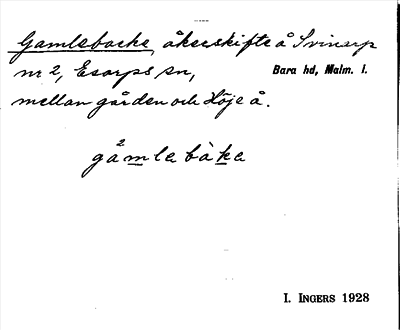 Gamlebacke, åkerskifte å Svinarp
nr 2, Esarps sn,
Bara hd, Malm. l.
mellan gården och Höje å.
gåmlabàka
I. INGERS 1928